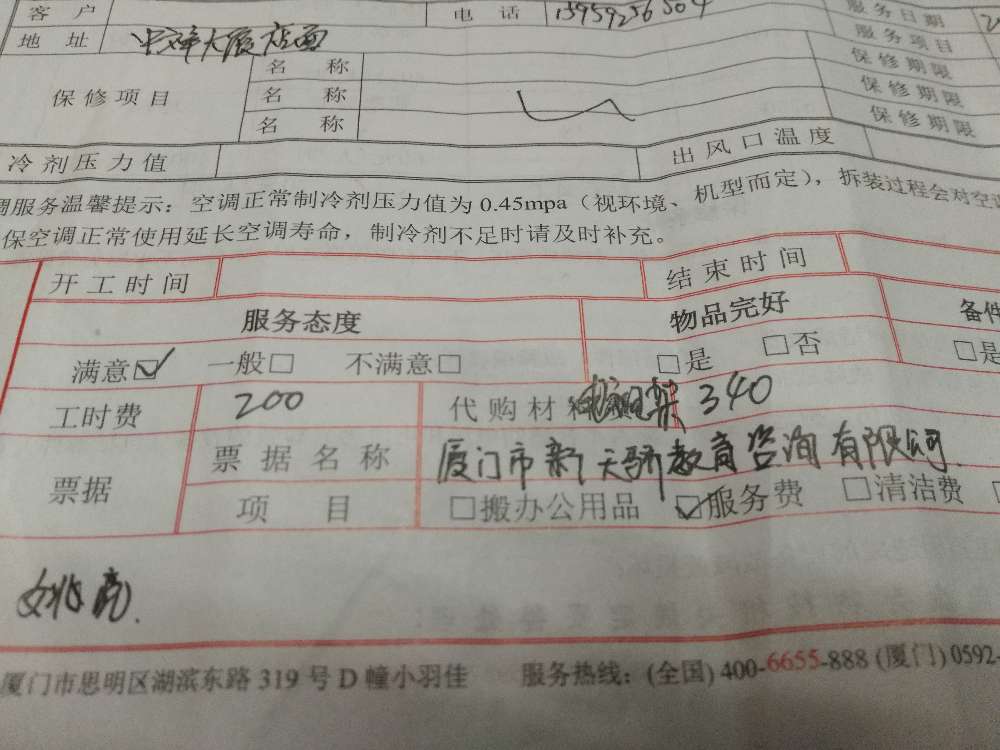 客 户 电 话 服务日期
地 址 大厦店面 服务项目
保修项目 名 称 保修期限
名 称 保修期限
名 称 保修期限
冷剂压力值 出风口温度
调服务温馨提示：空调正常制冷剂压力值为 0.45mpa（视环境、机型而定），拆装过程会对空调
保空调正常使用延长空调寿命，制冷剂不足时请及时补充。
开工时间 结束时间
服务态度 物品完好 备件
满意☑ 一般□ 不满意□ □是 □否 □是
工时费 200 代购材料 340
票据 票据名称 厦门市新天骄教育咨询有限公司
项 目 □搬办公用品 ☑服务费 □清洁费
姚亮
厦门市思明区湖滨东路 319 号 D 幢小羽佳 服务热线：(全国) 400-6655-888 (厦门) 0592-